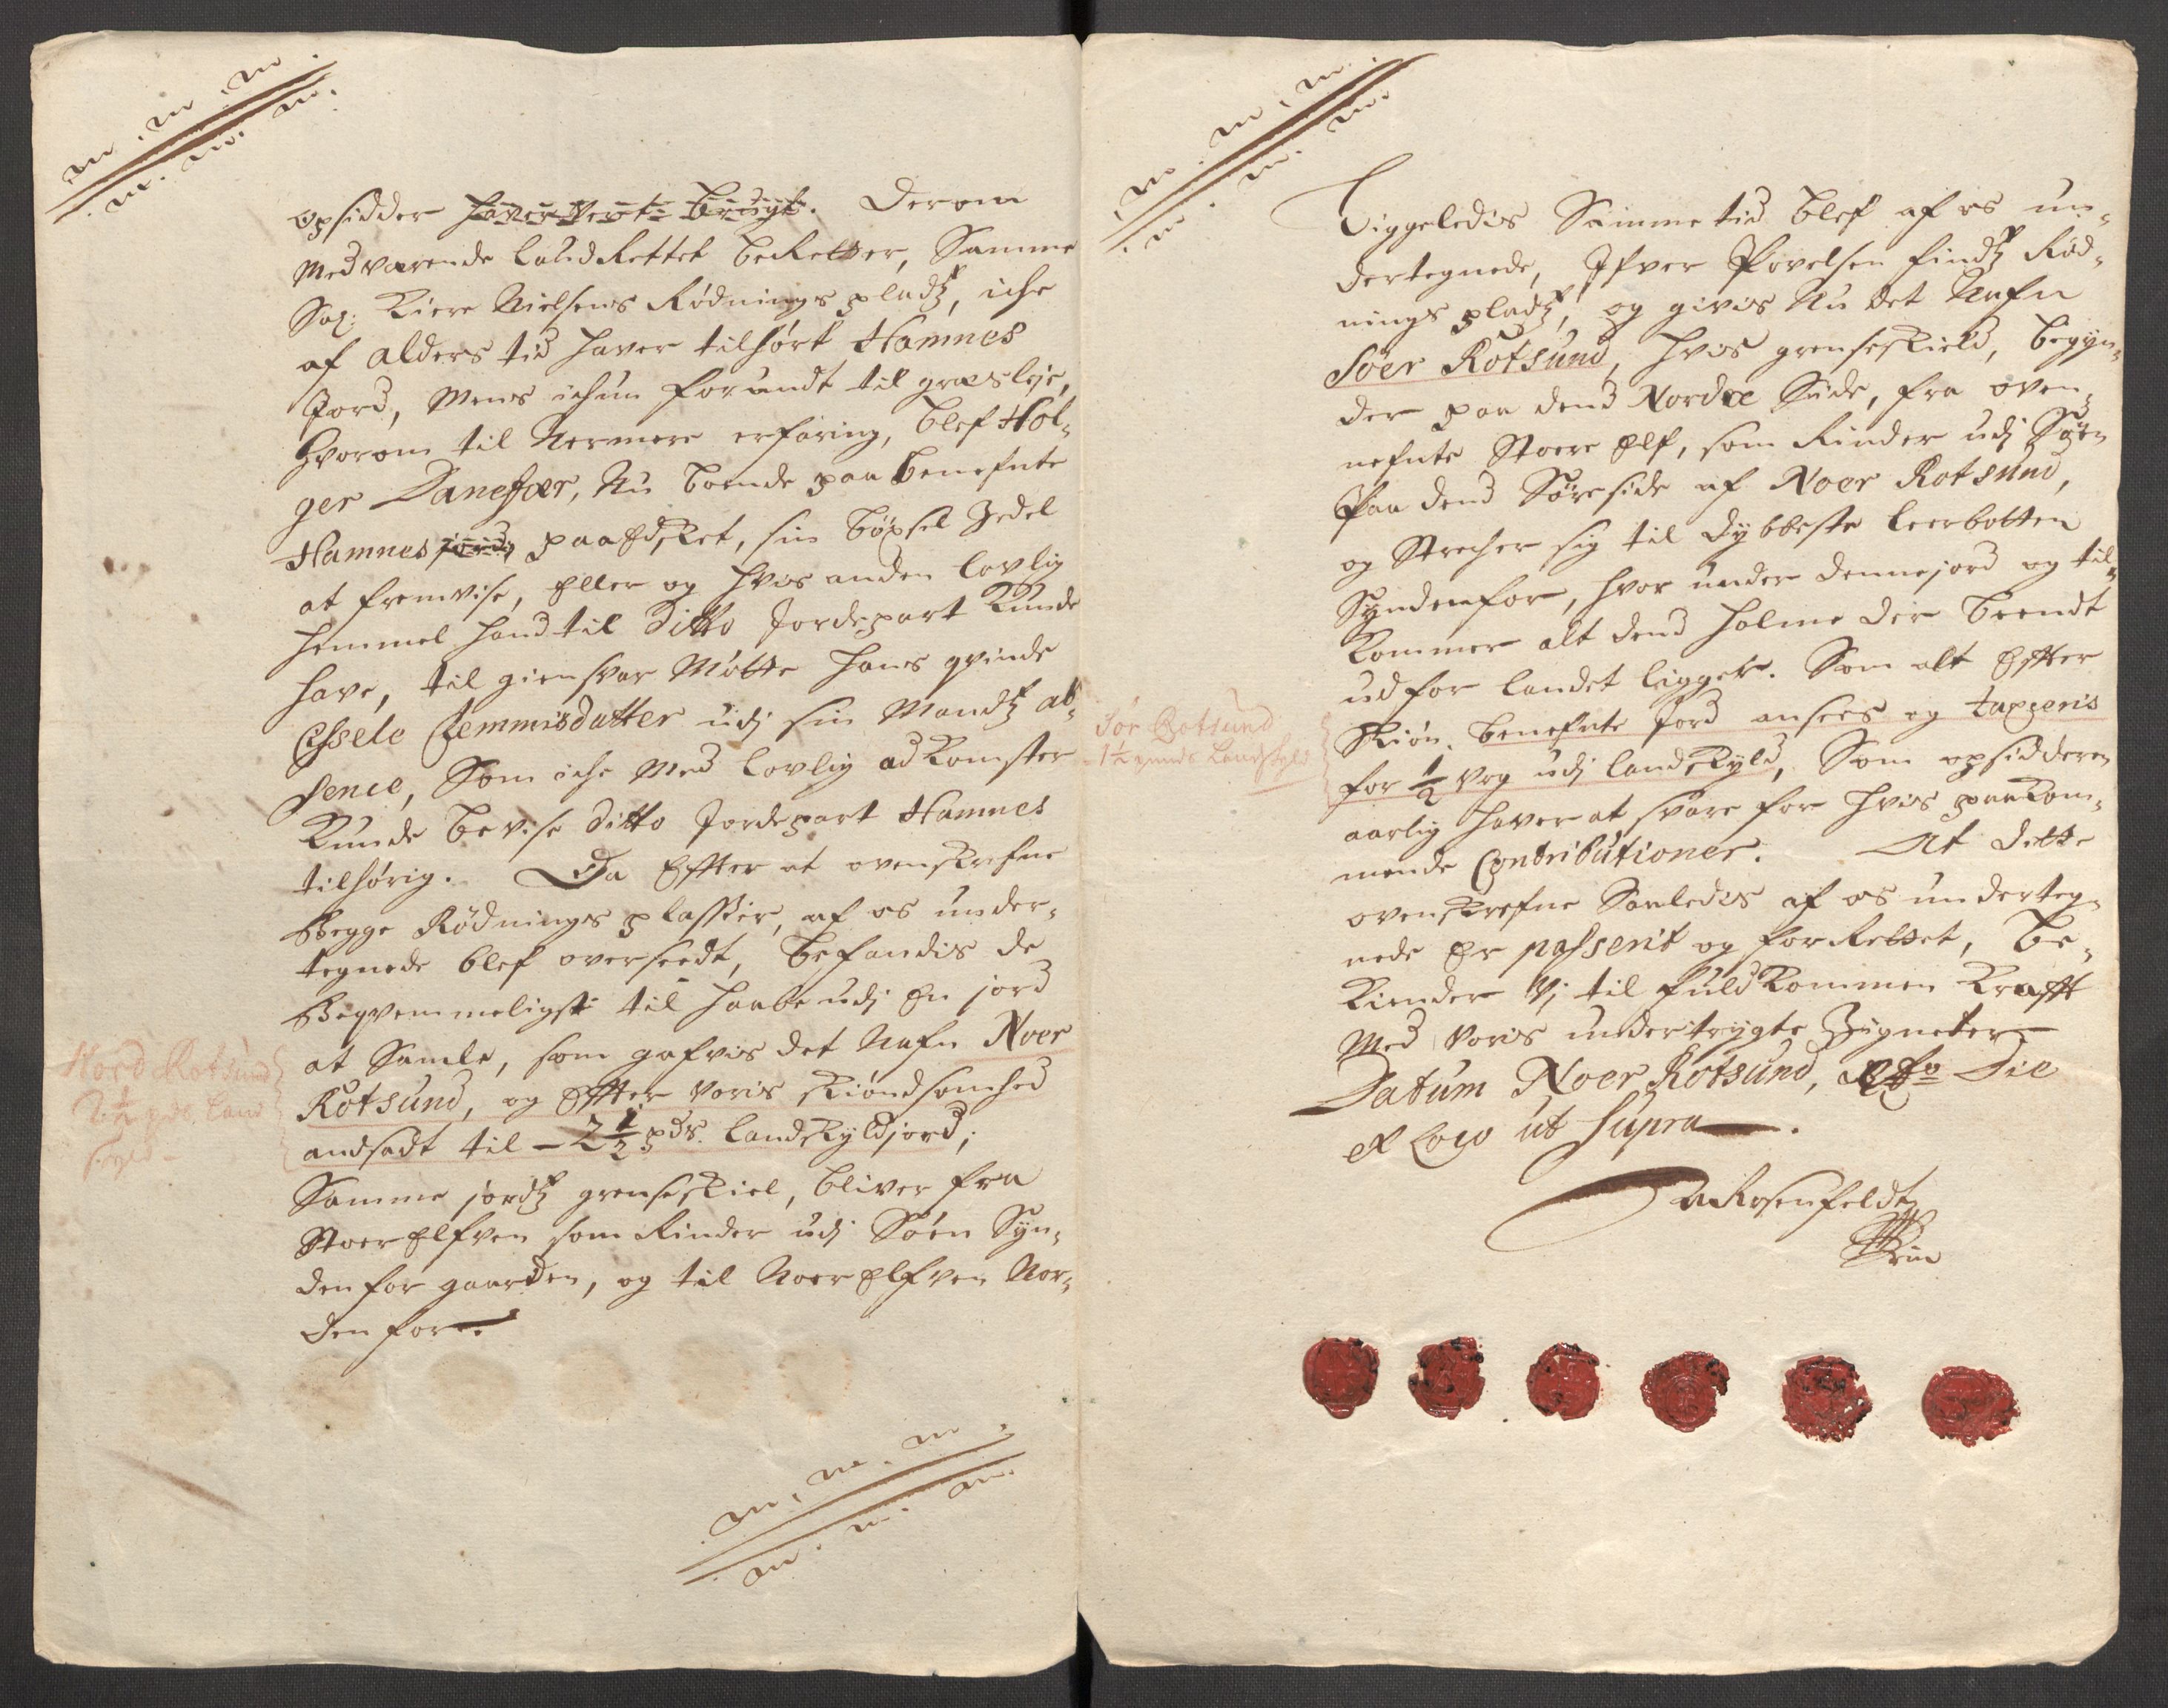 m . m . m .
m . m . m .
opsidder haver verit brugt. Derom
Medværende LaugRettet beRetter, Samme
Sal: Kiere Nielsens Rødnings pladtz, iche
af alders tid haver tilhørt Hamnes
Jord, Mens ichun forundt til græsleje,
Hvorom til Nermere erfaring, blef Hol-
ger Danefær, Nu boende paa benefnte
Hamnes jord, paaEdsket, sin böxsel Zedel
at fremvise, Eller og hvis anden lovlig
hemmel hand til Ditto Jordepart Kunde
have, til giensvar Møtte hans qvinde
Clemmisdatter udj sin Mandtz ab-
sence, Som iche Med lovlig adKomster
Kunde bevise Ditto Jordepart Hamnes
tilhørig. Da Effter at ovenskrefne
Begge Rødnings plasser, af os under-
tegnede blef overseedt, befandis de
Beqvemmeligst til haabe udj En jord
at Samle, som gafvis det Nafn Noer
Rotsund, og Effter voris skiøndsomhed
andsadt til - 2½ pds. Landskyldjord;
Samme jordtz grenseskiel, bliver fra
Stoer Elfven som Rinder udj Søen Syn-
den for gaarden, og til Noer Elfven Nor-
den for
Nord Rotsund
2½ pd. Land
skyld
m . m . m .
m . m . m .
m . m . m .
m . m . m .
Liggeledis Samme tid blef af os un-
dertegnede, Ifver Povelsen Findtz Rød-
nings pladtz, og givis Nu det Nafn
Söer Rotsund, hvis grenseskield, begyn-
der paa dend Nordre Side, fra oven-
nefnte Stoere Elf, som Rinder udj Søen
Paa dend Søreside af Noer Rotsund,
og Strecher sig til Dybbeste leerbotten
Syndenfor, hvor under dennejord og til-
Kommer alt dend holme der beendt
udfor landet ligger. Som alt Effter
Skiøn, benefnte Jord ansees og taxeris
for ½ vog udj landskyld, Som opsidderen
aarlig haver at svare for hvis paaKom-
mende Contributioner. At dette
ovenskrefne Saaledis af os underteg-
nede Er passerit og forRettet, be-
Kiender Vj til fuldKommen Krafft
Med voris undertrygte Zigneter
Datum Noer Rotsund, Die
et Loco ut Supra.
Sør Rotsund
1½ punds Landskyld
Rosenfeldt